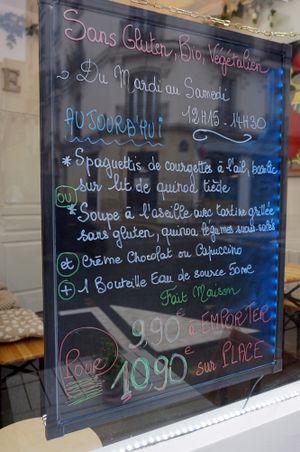 Sans Gluten, Bio, Végétalien
Du Mardi au Samedi
12H15 - 14H30
AUJOURD'HUI
* Spaguettis de courgettes à l'ail, basilic
sur lit de quinoa tiède
ou
* Soupe à l'oseille avec tartine grillée
sans gluten, quinoa légumes sucrés-salés
et Crème Chocolat ou Capuccino
+ 1 Bouteille Eau de source 50cl
Fait Maison
Pour 9,90€ à EMPORTER
10,90€ sur PLACE